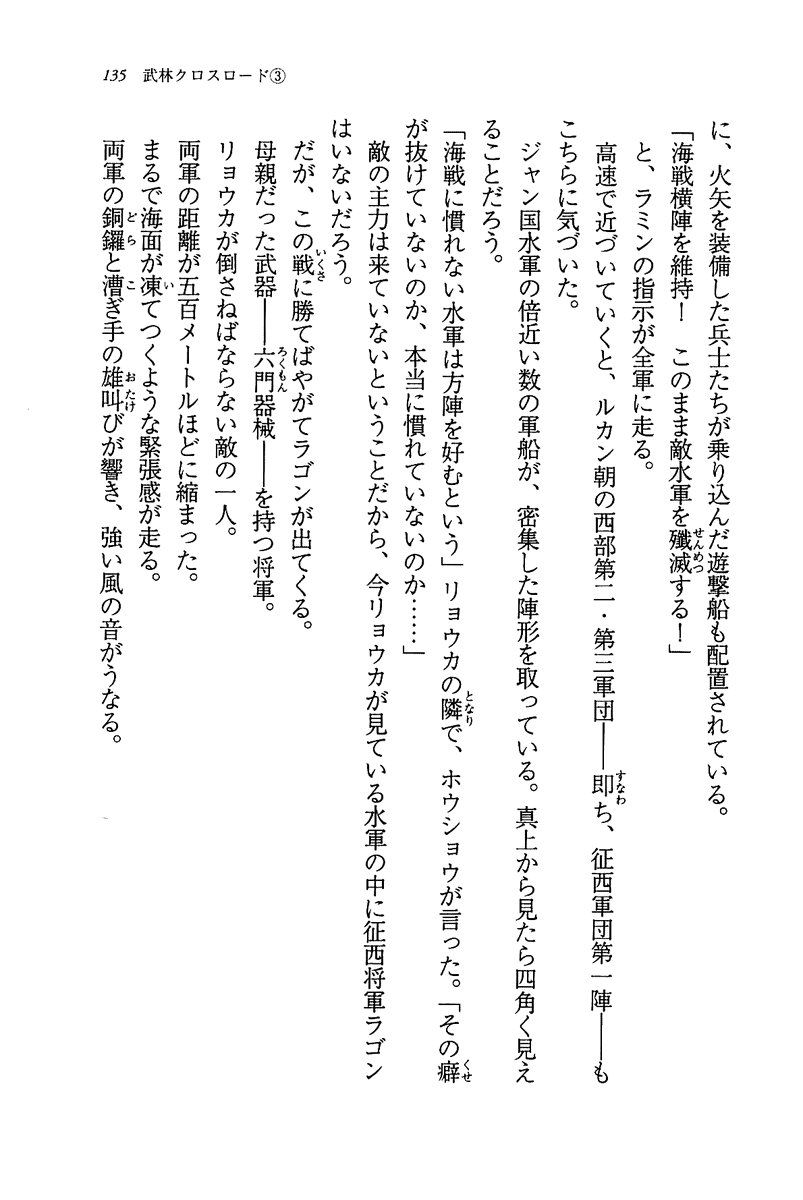 135 武林クロスロード③
に、火矢を装備した兵士たちが乗り込んだ遊撃船も配置されている。
「海戦横陣を維持！　このまま敵水軍を殲滅する！」
と、ラミンの指示が全軍に走る。
高速で近づいていくと、ルカン朝の西部第二・第三軍団――即ち、征西軍団第一陣――も
こちらに気づいた。
ジャン国水軍の倍近い数の軍船が、密集した陣形を取っている。真上から見たら四角く見え
ることだろう。
「海戦に慣れない水軍は方陣を好むという」リョウカの隣で、ホウショウが言った。「その癖
が抜けていないのか、本当に慣れていないのか……」
敵の主力は来ていないということだから、今リョウカが見ている水軍の中に征西将軍ラゴン
はいないだろう。
だが、この戦に勝てばやがてラゴンが出てくる。
母親だった武器――六門器械――を持つ将軍。
リョウカが倒さねばならない敵の一人。
両軍の距離が五百メートルほどに縮まった。
まるで海面が凍てつくような緊張感が走る。
両軍の銅鑼と漕ぎ手の雄叫びが響き、強い風の音がうなる。